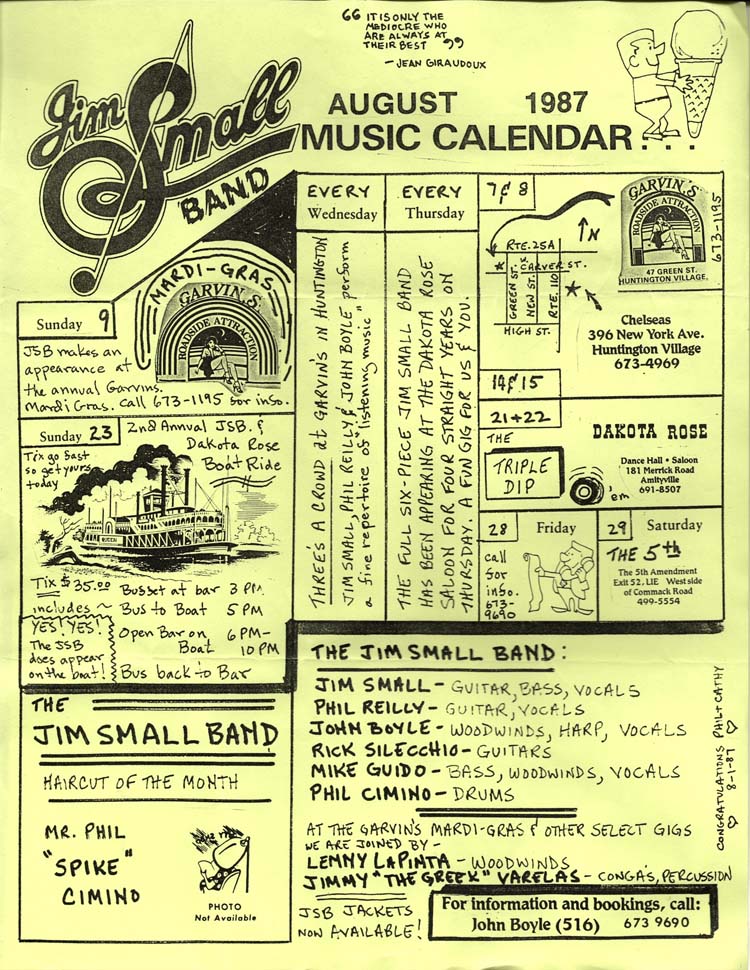 “ IT IS ONLY THE
MEDIOCRE WHO
ARE ALWAYS AT
THEIR BEST ”
- JEAN GIRAUDOUX
Jim Small
BAND
AUGUST 1987
MUSIC CALENDAR...
MARDI-GRAS
GARVIN'S
ROADSIDE ATTRACTION
Sunday 9
JSB makes an
appearance at
the annual Garvins
Mardi Gras. Call 673-1195 for info.
Sunday 23
2nd Annual JSB &
Dakota Rose
Boat Ride
Tix go fast
so get yours
today
QUEEN
Tix $35.00
includes ~
Buffet at bar 3 PM
Bus to Boat 5 PM
Open Bar on
Boat
6 PM-
10 PM
Bus back to Bar
YES! YES!
The JSB
does appear
on the boat!
EVERY
Wednesday
THREE'S A CROWD at GARVIN'S IN HUNTINGTON
JIM SMALL, PHIL REILLY & JOHN BOYLE perform
a fine repertoire of "listening music"
EVERY
Thursday
THE FULL SIX-PIECE JIM SMALL BAND
HAS BEEN APPEARING AT THE DAKOTA ROSE
SALOON FOR FOUR STRAIGHT YEARS ON
THURSDAY. A FUN GIG FOR US & YOU.
7 & 8
N
RTE. 25A
CARVER ST.
GREEN ST.
NEW ST.
RTE. 110
HIGH ST.
GARVIN'S
ROADSIDE ATTRACTION
47 GREEN ST.
HUNTINGTON VILLAGE.
673-1195
Chelseas
396 New York Ave.
Huntington Village
673-4969
14 & 15
21 + 22
THE
TRIPLE
DIP
'em
DAKOTA ROSE
Dance Hall • Saloon
181 Merrick Road
Amityville
691-8507
28 Friday
call
for
info.
673-
9690
29 Saturday
THE 5th
The 5th Amendment
Exit 52, LIE West side
of Commack Road
499-5554
THE
JIM SMALL BAND
HAIRCUT OF THE MONTH
MR. PHIL
"SPIKE"
CIMINO
PHOTO
Not Available
THE JIM SMALL BAND:
JIM SMALL - GUITAR, BASS, VOCALS
PHIL REILLY - GUITAR, VOCALS
JOHN BOYLE - WOODWINDS, HARP, VOCALS
RICK SILECCHIO - GUITARS
MIKE GUIDO - BASS, WOODWINDS, VOCALS
PHIL CIMINO - DRUMS
AT THE GARVIN'S MARDI-GRAS & OTHER SELECT GIGS
WE ARE JOINED BY -
LENNY LAPINTA - WOODWINDS
JIMMY "THE GREEK" VARELAS - CONGAS, PERCUSSION
JSB JACKETS
NOW AVAILABLE!
For information and bookings, call:
John Boyle (516) 673 9690
CONGRATULATIONS PHIL + CATHY
♡ 8-1-87 ♡